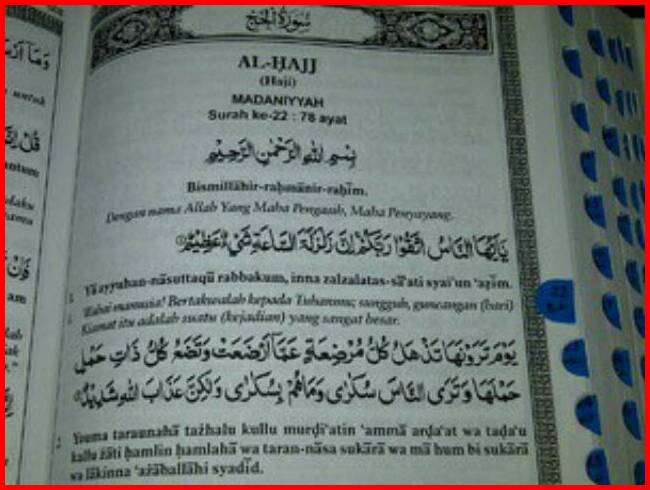 سُورَةُ الْحَجّ
AL-ḤAJJ
(Haji)
MADANIYYAH
Surah ke-22 : 78 ayat
بِسْمِ اللهِ الرَّحْمٰنِ الرَّحِيْمِ
Bismillāhir-raḥmānir-raḥīm.
Dengan nama Allah Yang Maha Pengasih, Maha Penyayang.
يٰٓاَيُّهَا النَّاسُ اتَّقُوْا رَبَّكُمْ اِنَّ زَلْزَلَةَ السَّاعَةِ شَيْءٌ عَظِيْمٌ ①
1. Yā ayyuhan-nāsuttaqū rabbakum, inna zalzalatas-sā'ati syai'un 'aẓīm.
1. Wahai manusia! Bertakwalah kepada Tuhanmu; sungguh, guncangan (hari)
Kiamat itu adalah suatu (kejadian) yang sangat besar.
يَوْمَ تَرَوْنَهَا تَذْهَلُ كُلُّ مُرْضِعَةٍ عَمَّآ اَرْضَعَتْ وَتَضَعُ كُلُّ ذَاتِ حَمْلٍ
حَمْلَهَا وَتَرَى النَّاسَ سُكٰرٰى وَمَا هُمْ بِسُكٰرٰى وَلٰكِنَّ عَذَابَ اللهِ شَدِيْدٌ ②
2. Yauma taraunahā tażhalu kullu murḍi'atin 'ammā arḍa'at wa taḍa'u
kullu żāti ḥamlin ḥamlahā wa taran-nāsa sukārā wa mā hum bi sukārā
wa lākinna 'ażāballāhi syadīd.